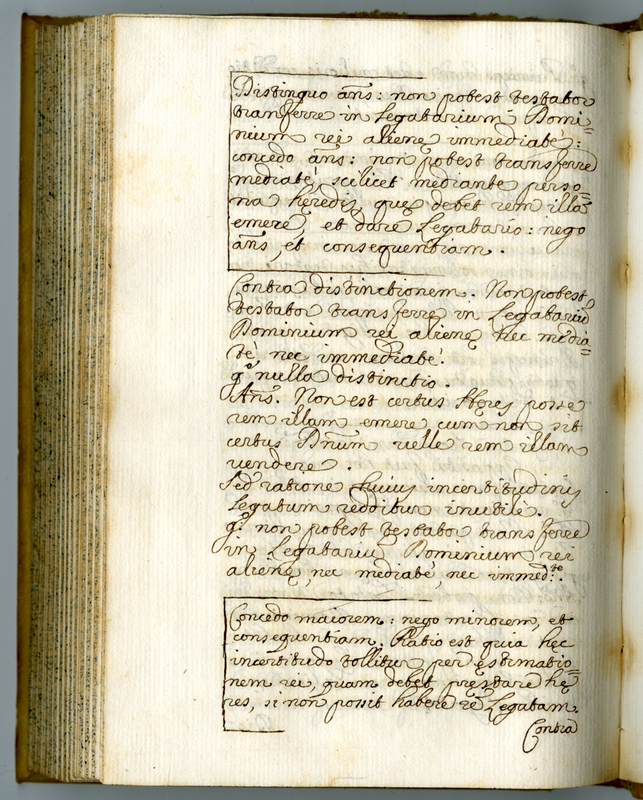 Distinguo añs: non potest testator
transferre in Legatarium Domi=
nium rei alienę immediatè:
concedo añs: non potest transferre
mediatè, scilicet mediante perso=
na hęredis, quę debet rem illã
emere, et dare Legatario: nego
añs, et consequentiam.
Contra distinctionem. Non potest
testator transferre in Legatariũ
Dominium rei alienę nec media=
tè, nec immediatè.
gº nulla distinctio.
Añs. Non est certus Hęres posse
rem illam emere cum non sit
certus Dñum velle rem illam
vendere.
Sed ratione huius incertitudinis
Legatum redditur inutile.
gº non potest testator transferre
in Legatariũ Dominium rei
alienę, nec mediatè, nec immed.te.
Concedo maiorem: nego minorem, et
consequentiam. Ratio est quia hęc
incertitudo tollitur per ęstimatio=
nem rei, quam debet pręstare hę
res, si non possit habere rẽ Legatam.
Contra